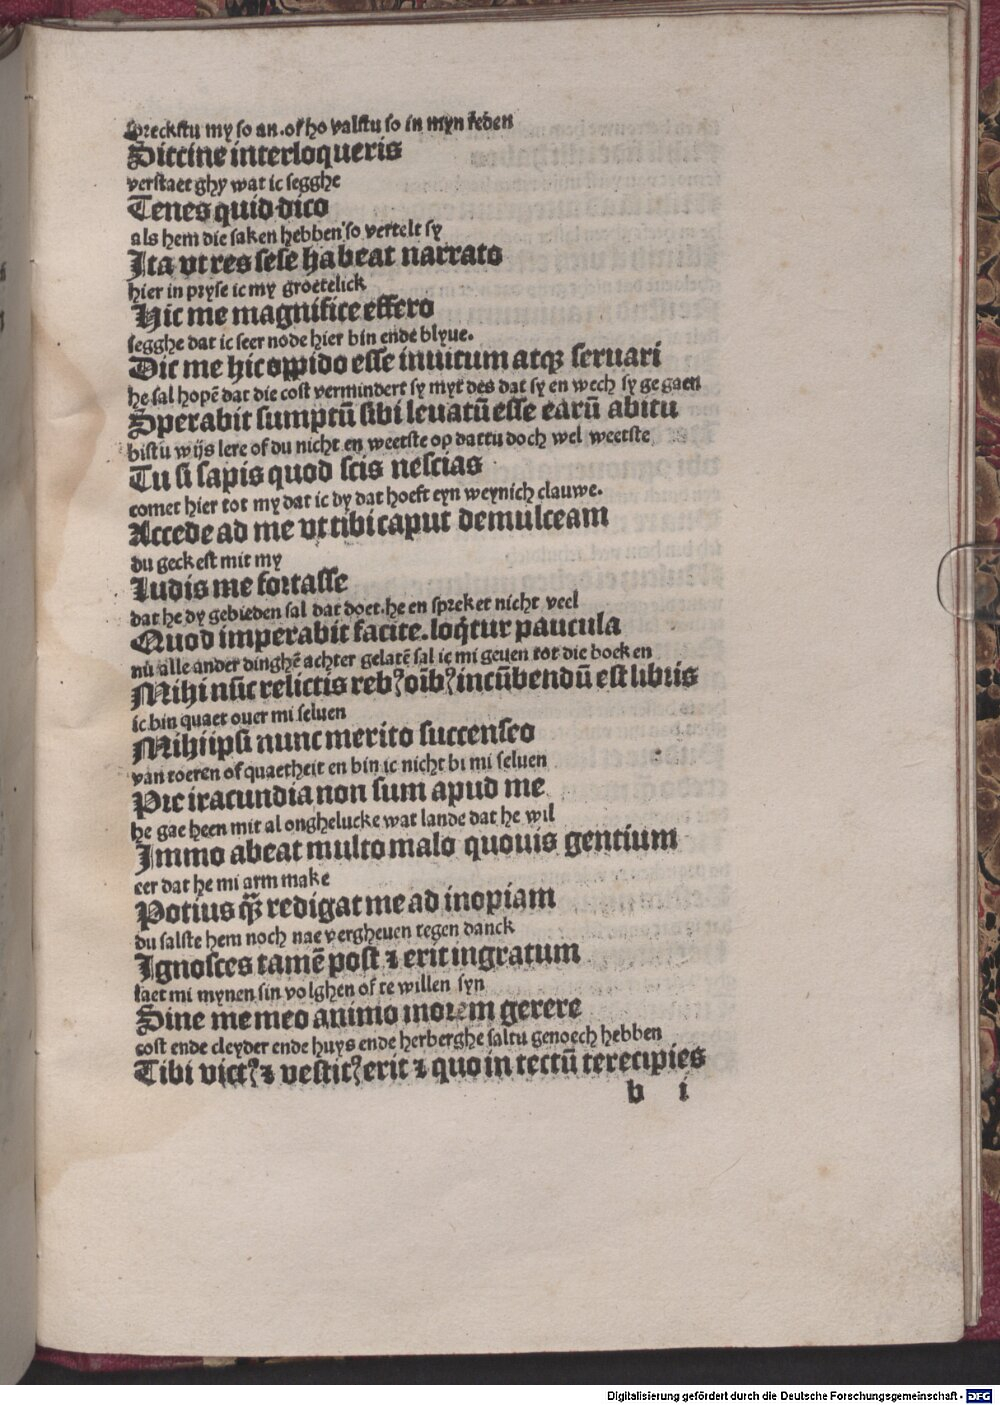 spreckstu my so an. of ho valstu so in myn reden
Siccine interloqueris
verstaet ghy wat ic segghe
Tenes quid dico
als hem die saken hebben so vertelt sy
Ita vt res sese habeat narrato
hier in pryse ic my groetelick
Hic me magnifice effero
segghe dat ic seer node hier bin ende blyue.
Dic me hic oppido esse inuitum atqꝫ seruari
he sal hopē dat die cost vermindert sy myt des dat sy en wech sy ge gaen
Sperabit sumptū sibi leuatū esse earū abitu
bistu wijs lere of du nicht en weetste op dattu doch wel weetste
Tu si sapis quod scis nescias
comet hier tot my dat ic dy dat hoeft eyn weynich clauwe.
Accede ad me vt tibi caput demulceam
du geck est mit my
Ludis me fortasse
dat he dy gebieden sal dat doet. he en spreket nicht veel
Quod imperabit facite. loq̄tur paucula
nū alle ander dinghē achter gelatē sal ic mi geuen tot die boeken
Mihi nūc relictis rebꝰ oībꝰ incūbendū est libris
ic bin quaet ouer mi seluen
Mihi ipsi nunc merito succenseo
van toeren of quaetheit en bin ic nicht bi mi seluen
Pre iracundia non sum apud me
he gae heen mit al onghelucke wat lande dat he wil
Immo abeat multo malo quouis gentium
eer dat he mi arm make
Potius qꝫ̄ redigat me ad inopiam
du salste hem noch nae vergheuen tegen danck
Ignosces tamē post ⁊ erit ingratum
laet mi mynen sin volghen of te willen syn
Sine me meo animo morem gerere
cost ende cleyder ende huys ende herberghe saltu genoech hebben
Tibi victꝰ ⁊ vestitꝰ erit ⁊ quo in tectū te recipies
b i
Digitalisierung gefördert durch die Deutsche Forschungsgemeinschaft - DFG